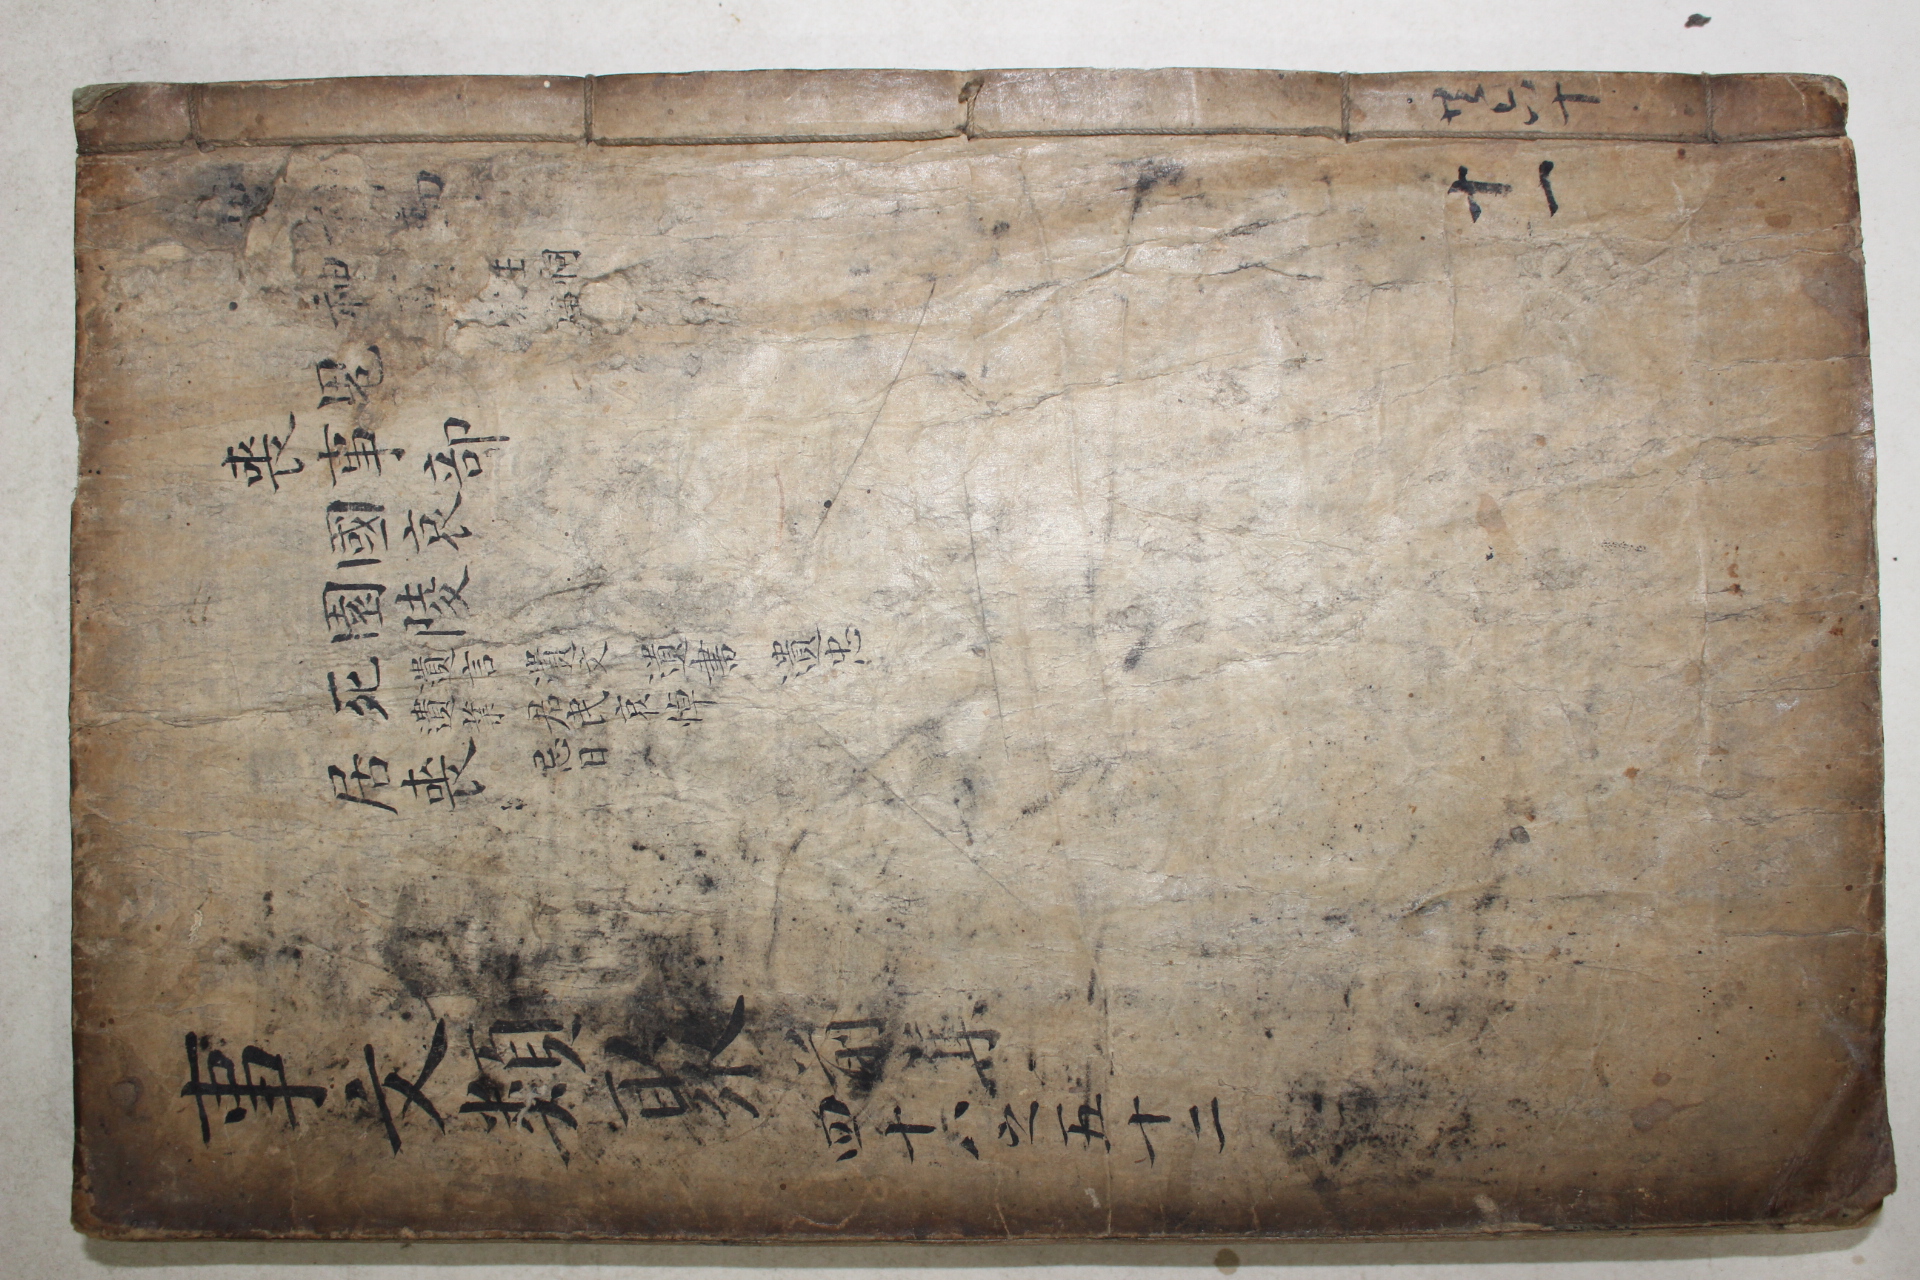 神
生祠
鬼
喪事部
國哀
園陵
死
遺言 遺文 遺書 遺忠
遺業 君民哀悼
居喪
忌日
事文類聚
前集
四十八之五十二
十一
共六十